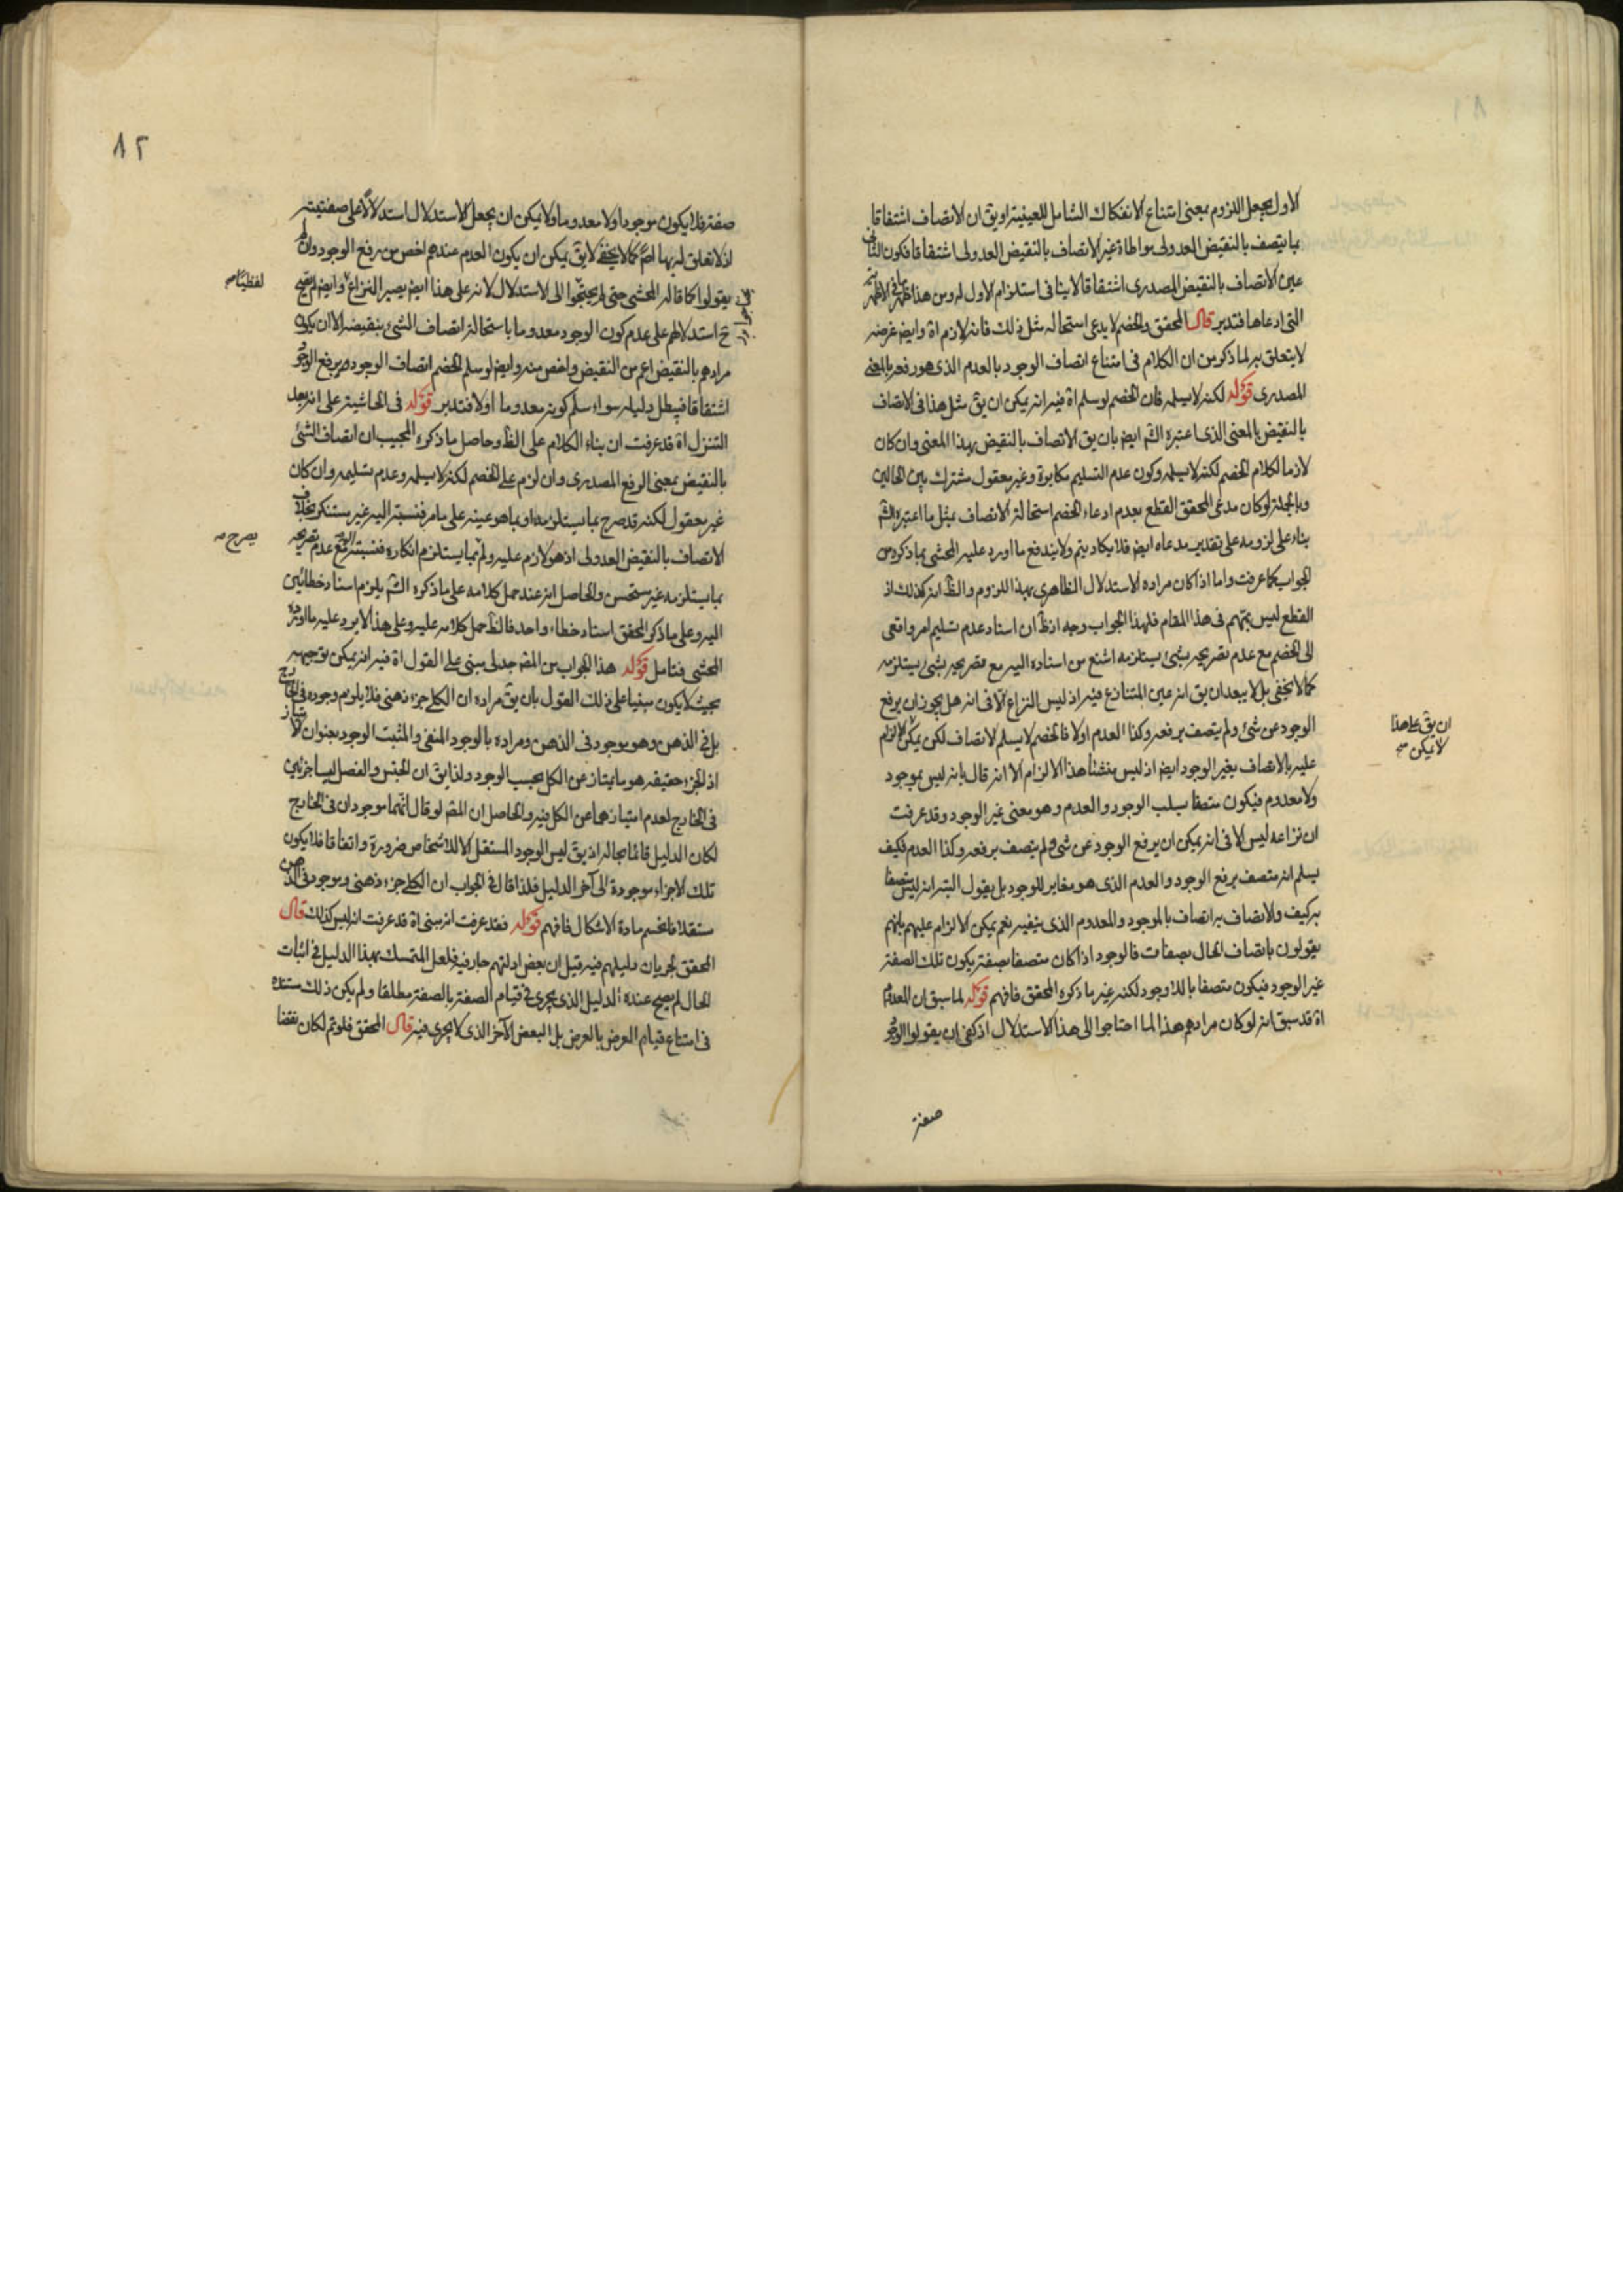 الاول يجعل اللزوم بمعنى امتناع الانفكاك الشامل للعينية او يق ان الاتصاف اشتقاقا
بما يتصف بالنقيض العدولى مواطاة غير الاتصاف بالنقيض العدولى اشتقاقا فكون الثانى
عين الاتصاف بالنقيض المصدرى اشتقاقا لا ينافى استلزام الاول له ومن هذا ظهر
التى ادعاها فتدبر قال المحقق والخصم لا يدعى استحالة مثل ذلك فانه لازم اة وايض غرضه
لا يتعلق به لما ذكر من ان الكلام فى امتناع اتصاف الوجود بالعدم الذى هو رفعه بالمعنى
المصدرى قوله لكنه لا يسلمه فان الخصم لو سلم اة فيه انه يمكن ان يق مثل هذا فى الاتصاف
بالنقيض بالمعنى الذى اعتبره الشم ايض بان يق الاتصاف بالنقيض بهذا المعنى وان كان
لازما لكلام الخصم لكنه لا يسلمه وكون عدم التسليم مكابرة وغير معقول مشترك بين الحالين
وبالجملة لو كان مدعى المحقق القطع بعدم ادعاء الخصم استحالة الاتصاف بمثل ما اعتبره الشم
بناء على لزومه على تقدير مدعاه ايض فلا يكاد يتم ولا يندفع ما اورد عليه المحشى بما ذكره من
الجواب كما عرفت واما اذا كان مراده الاستدلال الظاهرى بهذا اللزوم والظ انه كذلك اذ
القطع ليس بمهم فى هذا المقام فلهذا الجواب وجه اذ ظ ان اسناد عدم تسليم امر واقعى
الى الخصم مع عدم تصريحه بشئ يستلزمه اشنع من اسناده اليه مع تصريحه بشئ يستلزمه
كما لا يخفى بل لا يبعد ان يق انه عين المتنازع فيه اذ ليس النزاع الا فى انه هل يجوز ان يرفع
الوجود عن شئ ولم يتصف برفعه وكذا العدم اولا فالخصم لا يسلم الاتصاف لكن يمكن الالزام
عليه بالاتصاف بغير الوجود ايض اذ ليس منشأ هذا الالزام الا انه قال بانه ليس بموجود
ولا معدوم فيكون متصفا بسلب الوجود والعدم وهو معنى غير الوجود وقد عرفت
ان نزاعه ليس الا فى انه يمكن ان يرفع الوجود عن شئ ولم يتصف برفعه وكذا العدم فكيف
يسلم انه متصف برفع الوجود والعدم الذى هو مغاير للوجود بل يقول البتة انه ليس متصفا
به كيف والاتصاف به اتصاف بالموجود والمعدوم الذى ينفيه نعم يمكن الالزام عليهم بانهم
يقولون باتصاف الحال بصفات فالوجود اذا كان متصفا بصفة يكون تلك الصفة
غير الوجود فيكون متصفا باللاوجود لكنه غير ما ذكره المحقق فافهم قوله لما سبق ان المعدوم
اة قد سبق انه لو كان مرادهم هذا لما احتاجوا الى هذا الاستدلال اذ كفى ان يقولوا الوجود
ان يق على هذا
لا يمكن
صفة
٨٢
صفة فلا يكون موجودا ولا معدوما ولا يمكن ان يجعل الاستدلال استدلالا على صفتيته
اذ لا تعلق له بها اصلا كما لا يخفى لا يق يمكن ان يكون العدم عندهم اخص من رفع الوجود وان لم
يقولوا كما قاله المحشى حتى لم يحتاجوا الى الاستدلال لانه على هذا ايض يصير النزاع وايض لم يصح
ح استدلالهم على عدم كون الوجود معدوما باستحالة اتصاف الشئ بنقيضه الا ان يكون
مرادهم بالنقيض اعم من النقيض واخص منه وايض لو سلم الخصم اتصاف الوجود برفع الوجود
اشتقاقا فيبطل دليله سواء سلم كونه معدوما اولا فتدبر قوله فى الحاشية على انه بعد
التنزل اة قد عرفت ان بناء الكلام على الظ وحاصل ما ذكره المجيب ان اتصاف الشئ
بالنقيض بمعنى الرفع المصدرى وان لزم على الخصم لكنه لا يسلمه وعدم تسليمه وان كان
غير معقول لكنه قد صرح بما يستلزمه او بما هو عينه على ما مر فنسبته اليه غير مستنكر بخلاف
الاتصاف بالنقيض العدولى اذ هو لازم عليه ولم بما يستلزم انكاره فنسبته اليه مع عدم تصريحه
بما يستلزمه غير مستحسن والحاصل انه عند حمل كلامه على ما ذكره الشم يلزم اسناد خطائين
اليه وعلى ما ذكر المحقق اسناد خطاء واحد فالظ حمل كلامه عليه وعلى هذا لا يرد عليه ما اورده
المحشى فتامل قوله هذا الجواب من المقم جدلى مبنى على القول اة فيه انه يمكن توجيهه
بحيث لا يكون مبنيا على ذلك القول بان يق مراده ان الكلى جزء ذهنى فلا يلزم وجوده فى الخارج
بل فى الذهن وهو موجود فى الذهن ومراده بالوجود المنفى والمثبت الوجود بعنوان الامتياز
اذ الجزء حقيقة هو ما يمتاز عن الكل بحسب الوجود ولذا يق ان الجنس والفصل ليسا جزئين
فى الخارج لعدم امتيازهما عن الكل فيه والحاصل ان المقم لو قال انهما موجودان فى الخارج
لكان الدليل قائما بحاله اذ يق ليس الوجود المستقل الا للاشخاص ضرورة واتفاقا فلا يكون
تلك الاجزاء موجودة الى آخر الدليل فلذا قال فى الجواب ان الكلى جزء ذهنى وموجود فى الذهن
مستقلا فانحسم مادة الاشكال فافهم قوله فقد عرفت انه مبنى اة قد عرفت انه ليس كذلك قال
المحقق لجريان دليلهم فيه قيل ان بعض ادلتهم جار فيه فلعل المتمسك بهذا الدليل فى اثبات
الحال لم يصح عنده الدليل الذى يجرى فى قيام الصفة بالصفة مطلقا ولم يكن ذلك مستنده
فى امتناع قيام العرض بالعرض بل البعض الآخر الذى لا يجرى فيه قال المحقق فلو تم لكان نقضا
لفظيا
يصرح